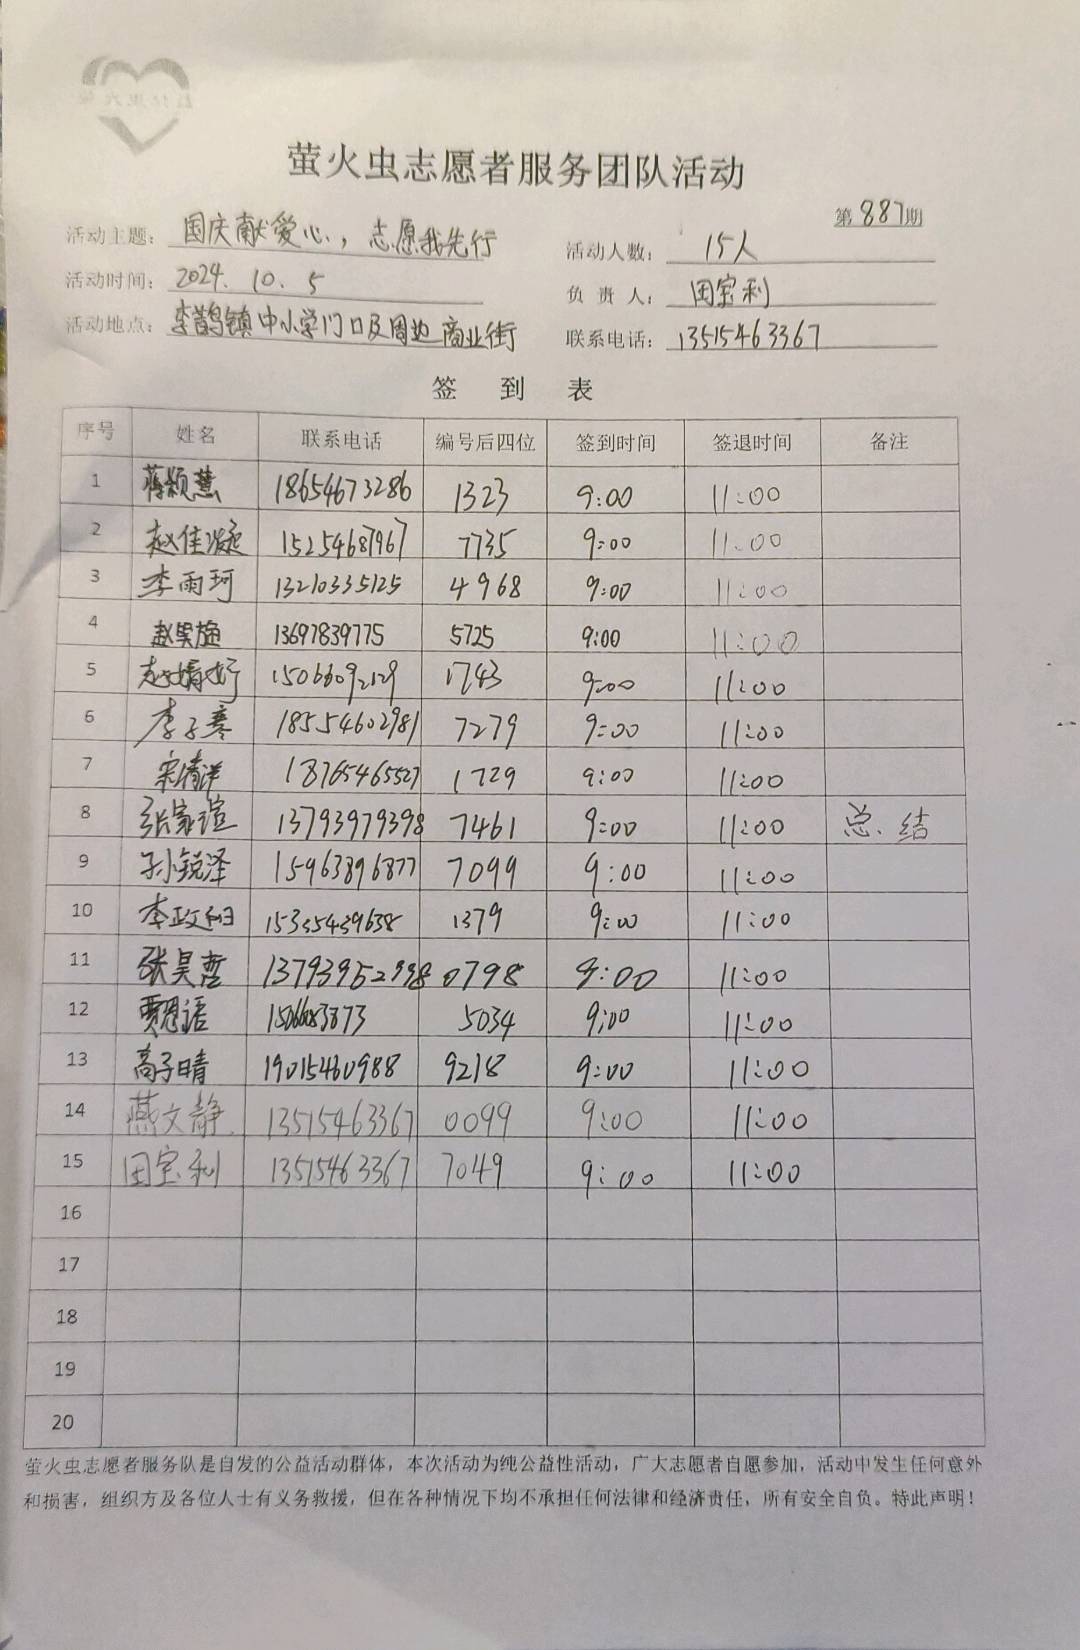 萤火虫志愿者服务团队活动
第887期
活动主题：国庆献爱心，志愿我先行 活动人数：15人
活动时间：2024.10.5 负责人：田宝利
活动地点：李鹊镇中小学门口及周边商业街 联系电话：13515463367
签到表
序号 姓名 联系电话 编号后四位 签到时间 签退时间 备注
1 蒋颖慧 18654673286 1323 9:00 11:00
2 赵佳凝 15254687967 7735 9:00 11:00
3 李雨珂 13210335125 4968 9:00 11:00
4 赵昊旋 13697839775 5725 9:00 11:00
5 赵婧妤 15066092129 1743 9:00 11:00
6 李子骞 18554602981 7279 9:00 11:00
7 宋清洋 18765465527 1729 9:00 11:00
8 张家瑄 13793979398 7461 9:00 11:00 总结
9 孙锐泽 15963896877 7099 9:00 11:00
10 李政阳 15335439638 1379 9:00 11:00
11 张昊哲 13793952998 0798 9:00 11:00
12 贾思语 5034 9:00 11:00
13 高子晴 19015460988 9218 9:00 11:00
14 燕文静 13515463367 0099 9:00 11:00
15 田宝利 13515463367 7049 9:00 11:00
16
17
18
19
20
萤火虫志愿者服务队是自发的公益活动群体，本次活动为纯公益性活动，广大志愿者自愿参加，活动中发生任何意外
和损害，组织方及各位人士有义务救援，但在各种情况下均不承担任何法律和经济责任，所有安全自负。特此声明！